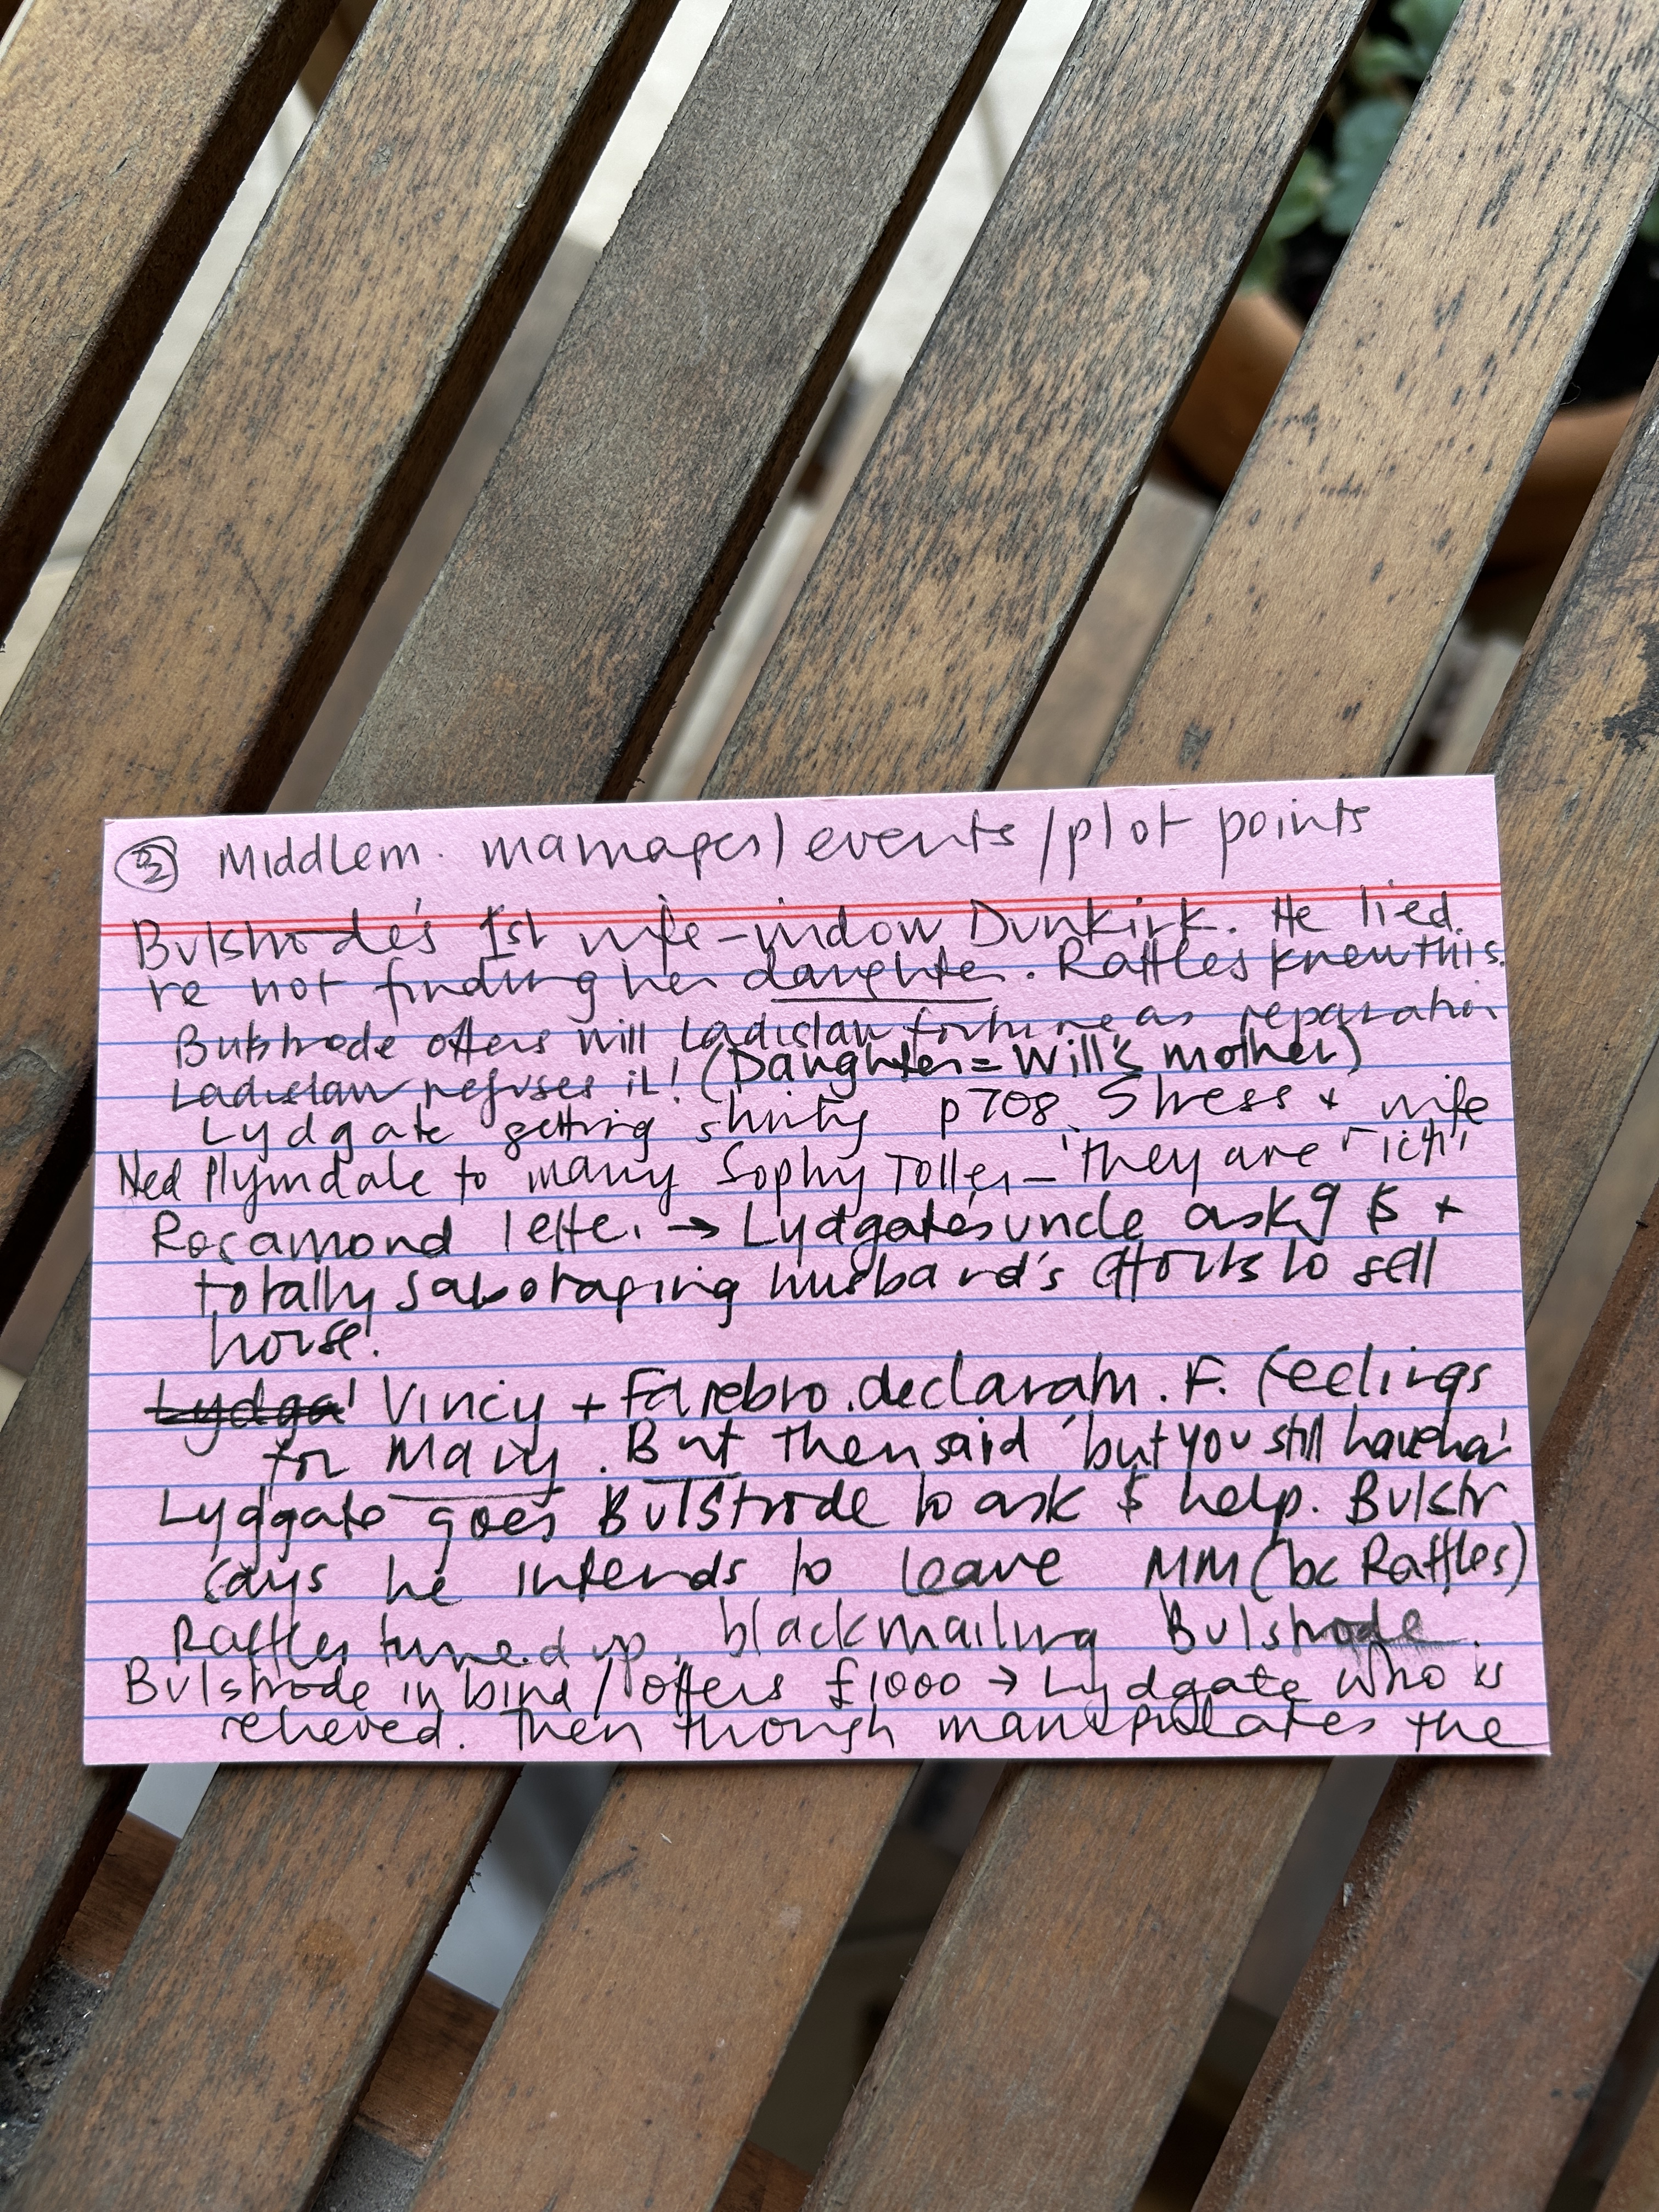 ② Middlem. marriages/events/plot points
Bulstrode's 1st wife - widow Dunkirk. He lied
re not finding her daughter. Raffles knew this.
Bulstrode offers Will Ladislaw fortune as reparation
Ladislaw refuses it! (Daughter = Will's mother)
Lydgate getting shirty p708. Stress + wife
Ned Plymdale to marry Sophy Toller - 'they are rich'
Rosamond letter → Lydgate's uncle askg $ +
totally sabotaging husband's efforts to sell
house!
Lydga Vincy + Farebro. declaratn. F. feelings
for Mary. But then said 'but you still have
Lydgate goes Bulstrode to ask $ help. Bulstr
says he intends to leave MM (bc Raffles)
Raffles turned up, blackmailing Bulstrode.
Bulstrode in bind / offers £1000 → Lydgate who is
relieved. Then though manipulates the